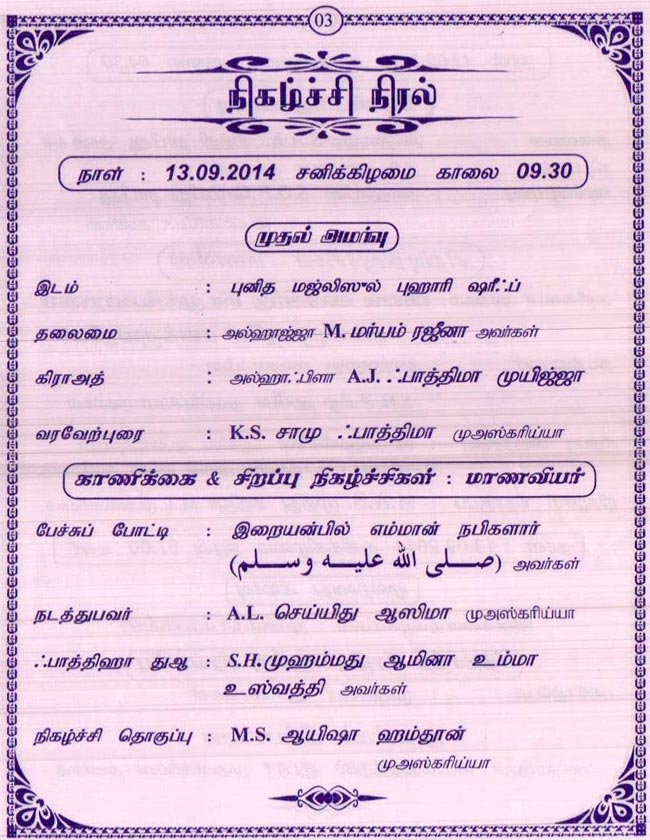 03
நிகழ்ச்சி நிரல்
நாள் : 13.09.2014 சனிக்கிழமை காலை 09.30
முதல் அமர்வு
இடம் : புனித மஜ்லிஸுல் புஹாரி ஷரீஃப்
தலைமை : அல்ஹாஜ்ஜா M. மர்யம் ரஜீனா அவர்கள்
கிராஅத் : அல்ஹாஃபிளா A.J. ஃபாத்திமா முயிஜ்ஜா
வரவேற்புரை : K.S. சாமு ஃபாத்திமா முஅஸ்கரிய்யா
காணிக்கை & சிறப்பு நிகழ்ச்சிகள் : மாணவியர்
பேச்சுப் போட்டி : இறையன்பில் எம்மான் நபிகளார்
(صلى الله عليه وسلم) அவர்கள்
நடத்துபவர் : A.L. செய்யிது ஆஸிமா முஅஸ்கரிய்யா
ஃபாத்திஹா துஆ : S.H.முஹம்மது ஆமினா உம்மா
உஸ்வத்தி அவர்கள்
நிகழ்ச்சி தொகுப்பு : M.S. ஆயிஷா ஹம்தூன்
முஅஸ்கரிய்யா